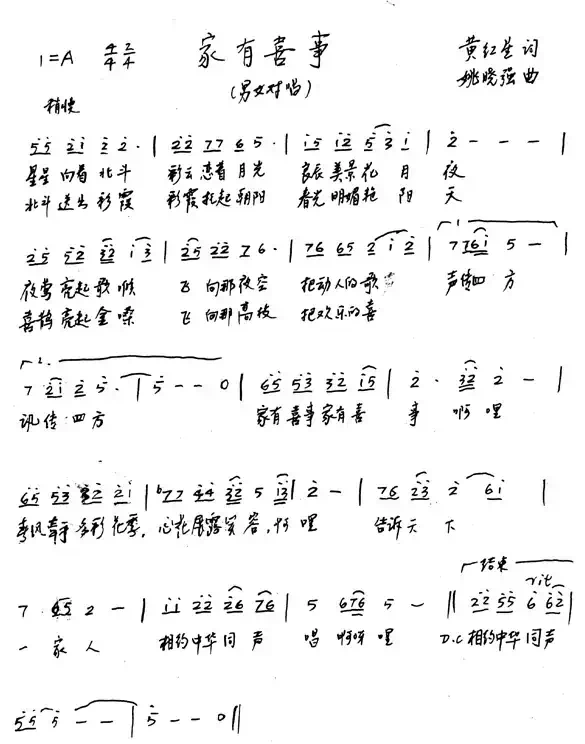 家有喜事
1=A 4/4 2/4
黄红生词
(男女对唱)
姚晓强曲
稍快
5̇5̇ 2̇1̇ 2̇ 2̇· | 2̇2̇ 77 6 5· | 1̇5 1̇2̇ 5̇3̇ 1̇ | 2̇ - - - |
星星向着北斗 彩云恋着月光 良辰美景花月夜
北斗送出彩霞 彩霞托起朝阳 春光明媚艳阳天
2̇5̇ 5̇2̇ 3̇2̇ 1̇3̇ | 2̇5 2̇2̇ 76· | 76 65 2̇ 1̇2̇ | 7 761̇ 5 - |
夜莺亮起歌喉 飞向那夜空 把动人的歌 声传四方
喜鹊亮起金嗓 飞向那高枝 把欢乐的喜
7 2̇1̇ 2̇ 5̇· | 5̇ - - 0 | 6̇5̇ 5̇3̇ 3̇2̇ 1̇5 | 2̇· 3̇2̇ 2̇ - |
讯传四方 家有喜事家有喜事啊哩
6̇5̇ 5̇3̇ 3̇2̇ 2̇1̇ | ♭77 4̇4̇ 3̇2̇ 5 1̇3̇ | 2̇ - | 76 2̇3̇ 2̇ 61̇ |
春风牵手多彩花季，心花展露笑容，啊哩 告诉天下
结束
rit
7· 65 2 - | 1̇1̇ 2̇2̇ 2̇6 76 | 5 676 5 - ‖ 2̇2̇ 5̇5̇ 6̇ 6̇2̇ |
一家人 相约中华同声 唱啊呀哩 D.C 相约中华同声
5̇5̇ 5̇ - - | 5̇ - - 0 ‖